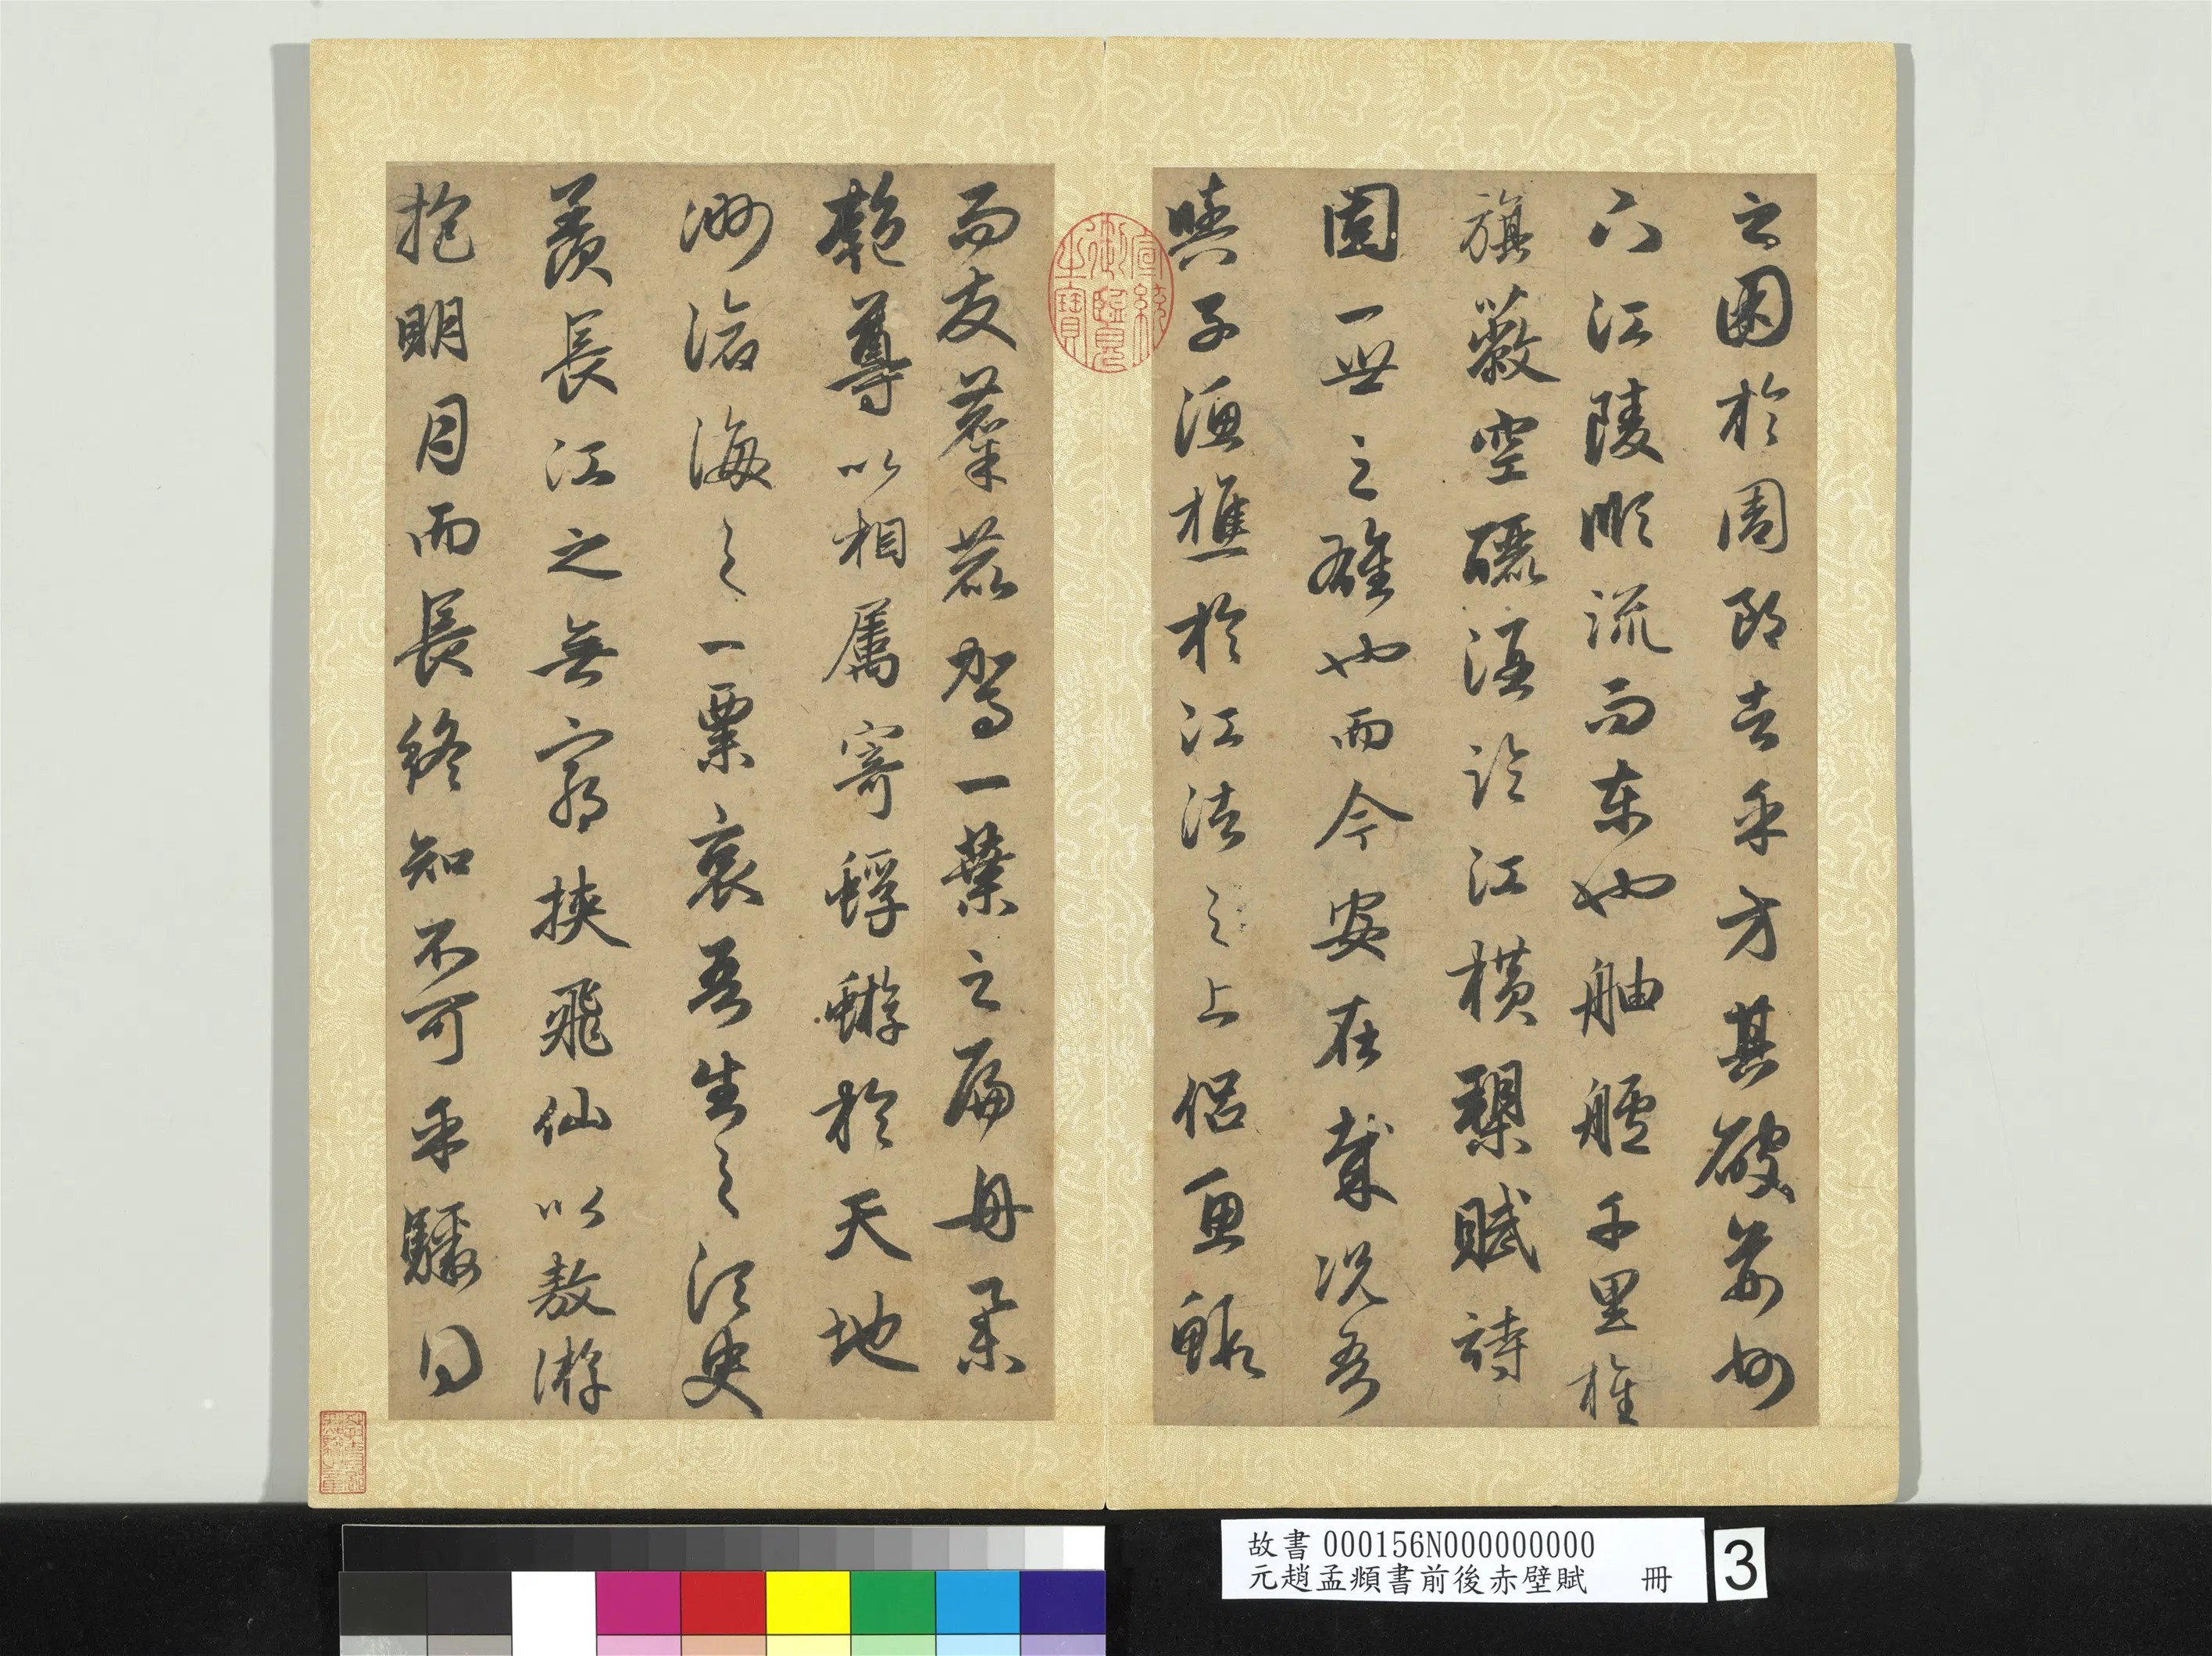 之困於周郎者乎方其破荊州
下江陵順流而東也舳艫千里旌
旗蔽空釃酒臨江橫槊賦詩
固一世之雄也而今安在哉況吾
與子漁樵於江渚之上侶魚蝦
而友麋鹿駕一葉之扁舟舉
匏尊以相屬寄蜉蝣於天地
渺滄海之一粟哀吾生之須臾
羨長江之無窮挾飛仙以敖游
抱明月而長終知不可乎驟得
宣統御覽之寶
故書000156N000000000
元趙孟頫書前後赤壁賦 冊
3